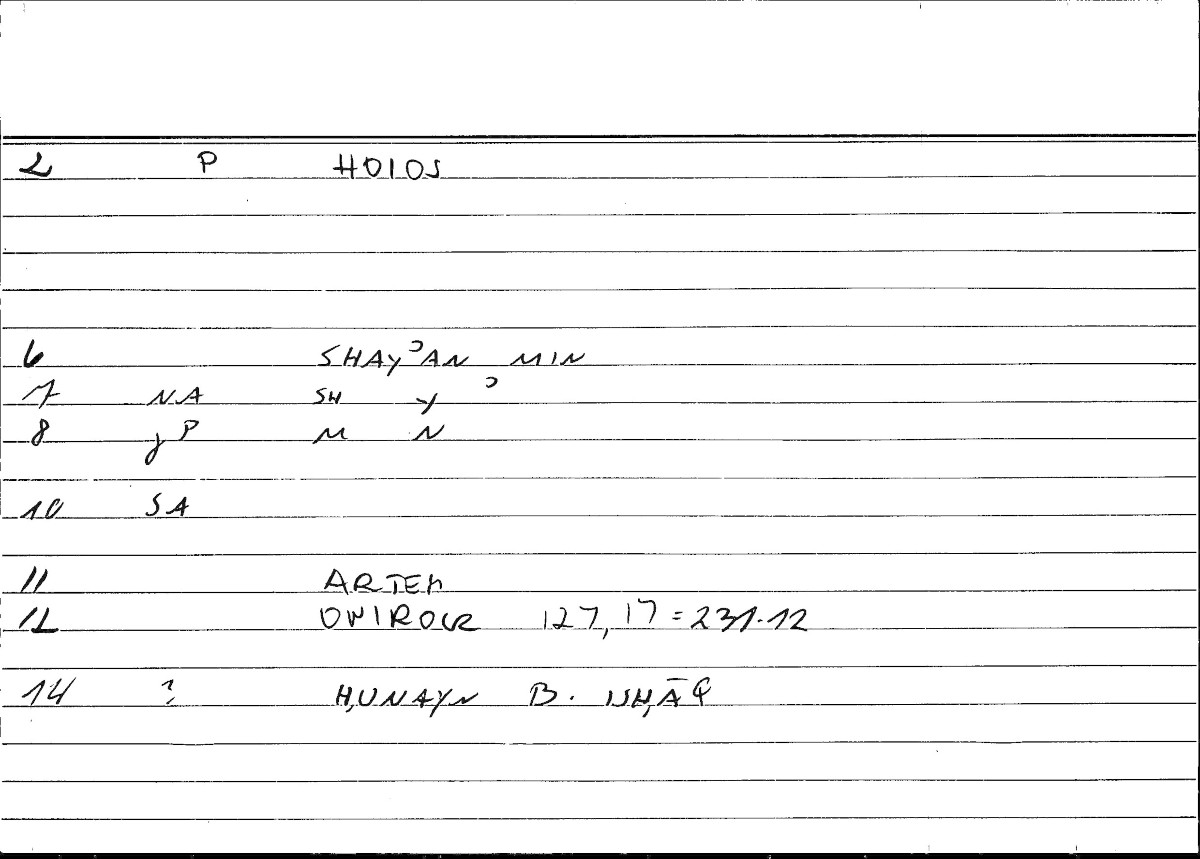 2 P HOIOS
6 SHAYʾAN MIN
7 NA SH Y ʾ
8 γP M N
10 SA
11 ARTEM
12 ONIROCR 127,17 = 231.12
14 ? ḤUNAYN B. ISḤĀQ